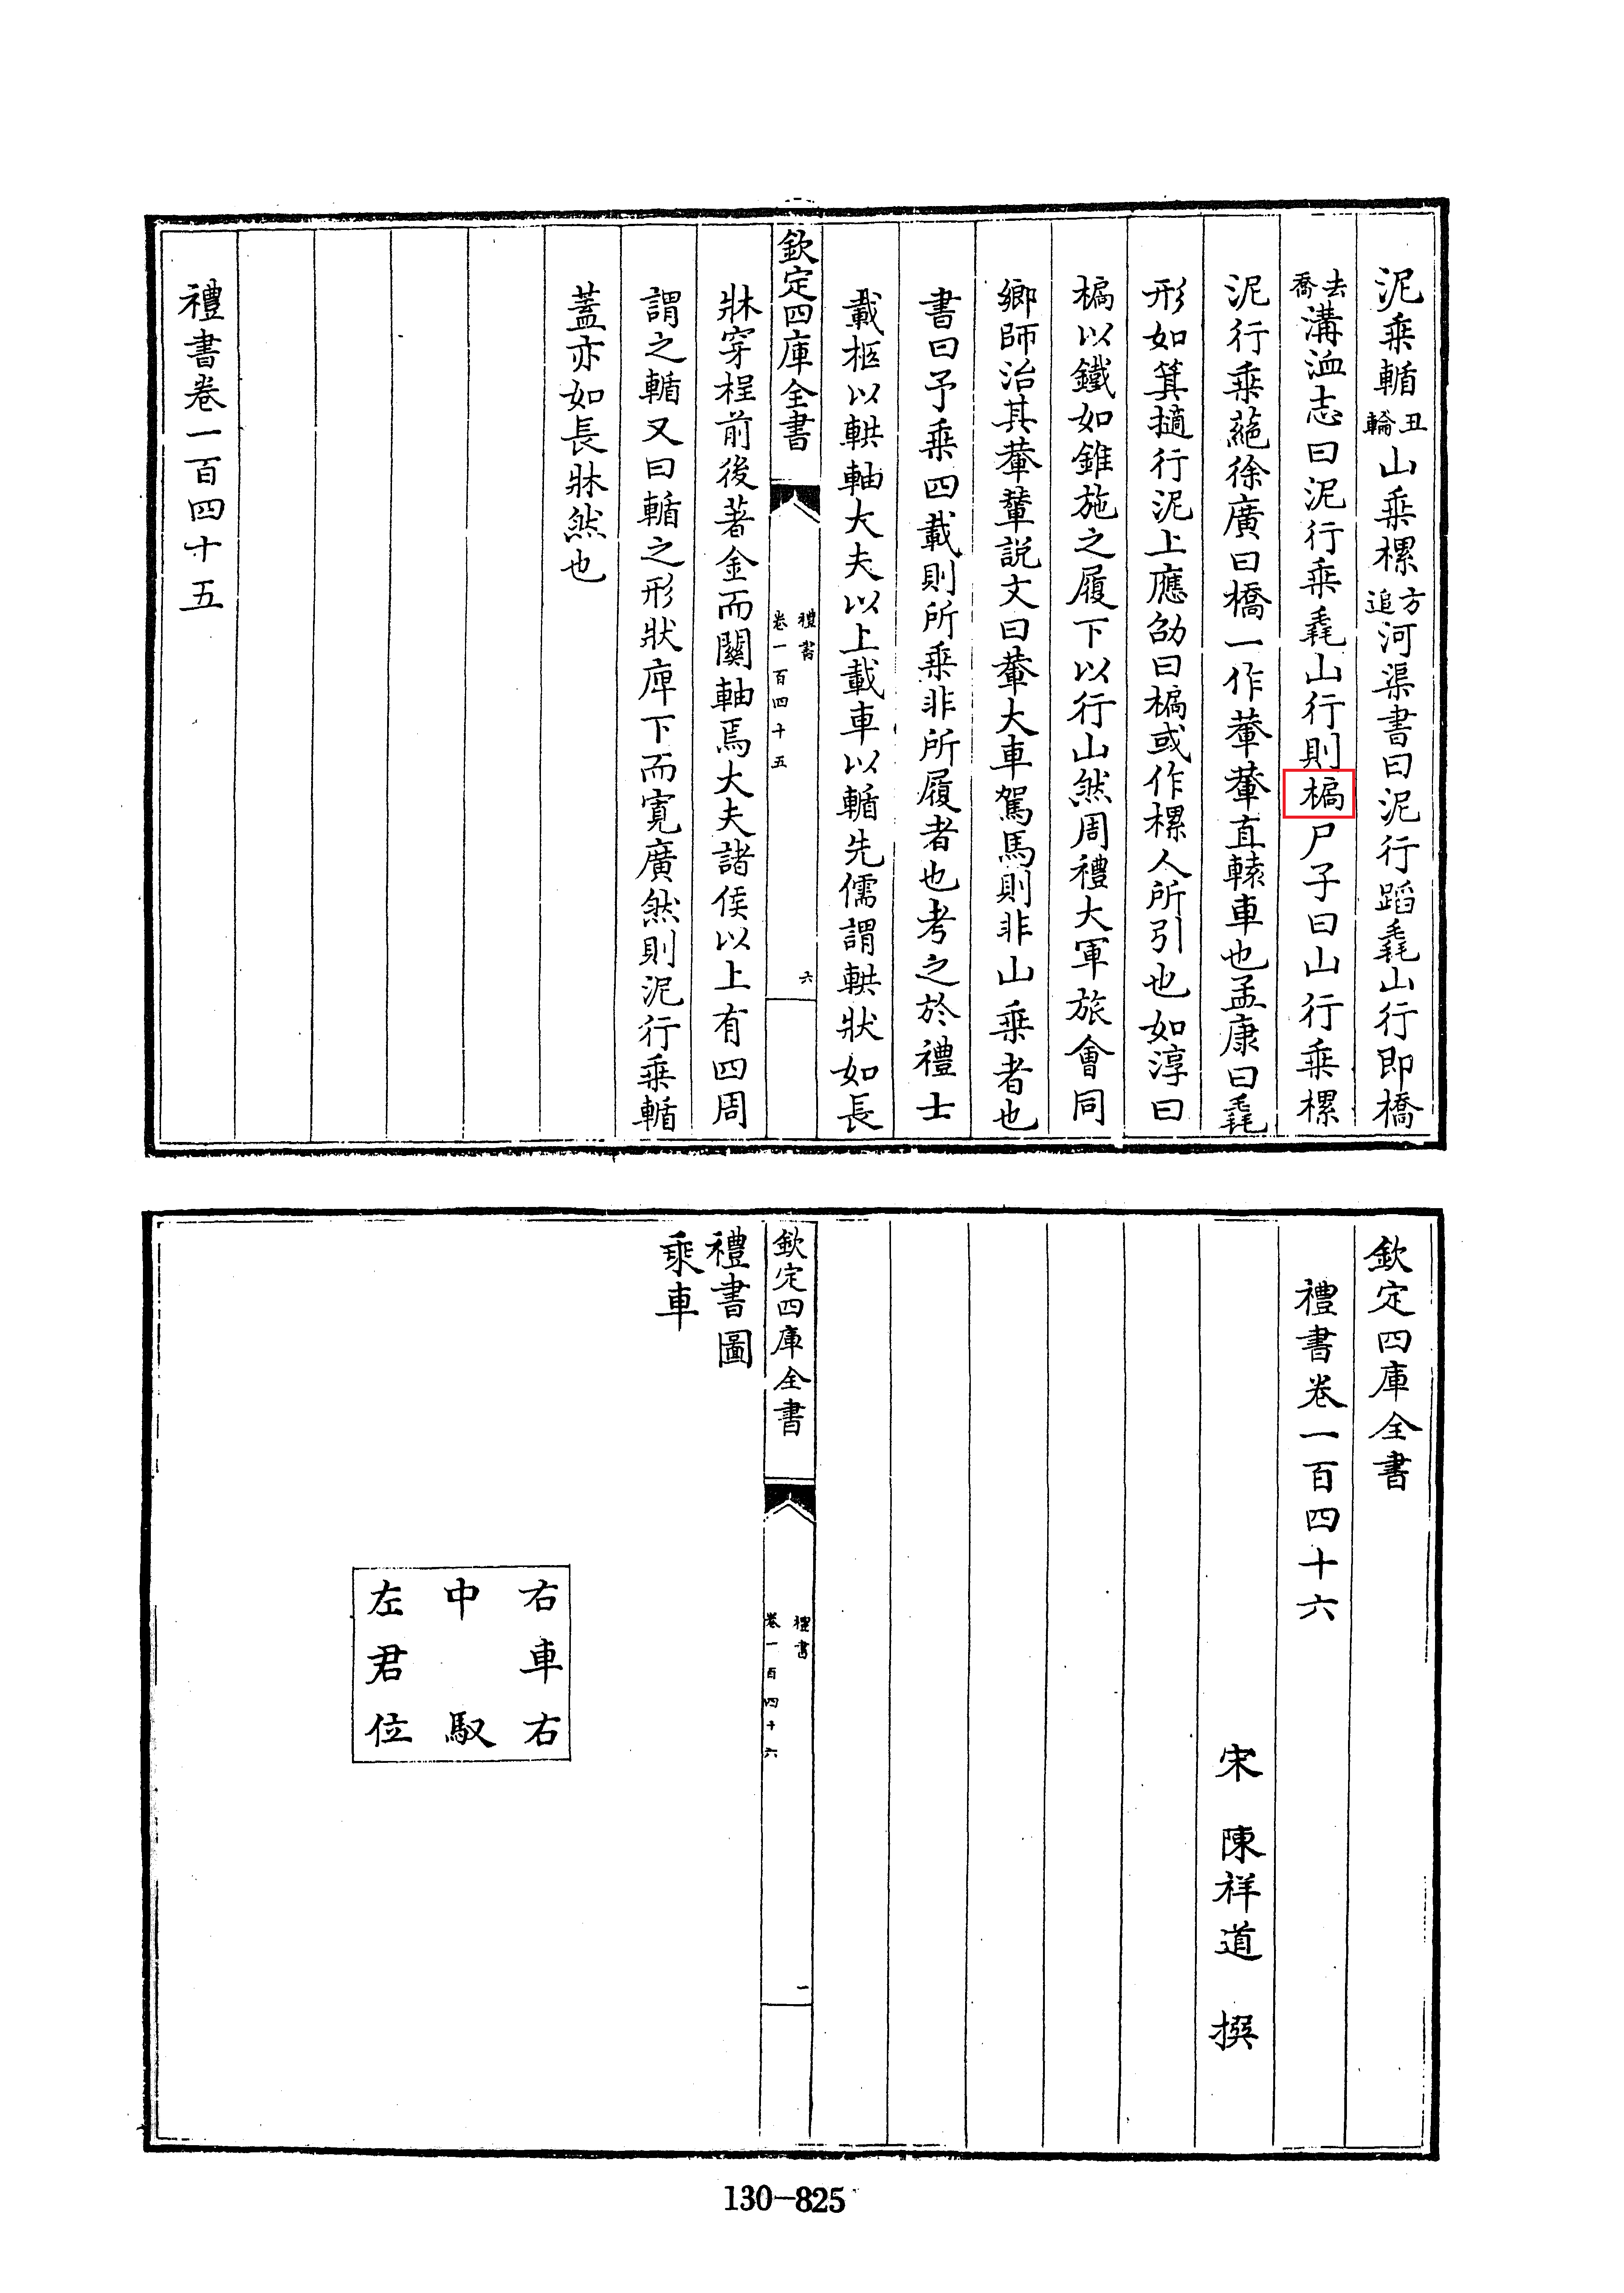 泥乘輴丑輪山乘樏方追河渠書曰泥行蹈毳山行即橋
去喬溝洫志曰泥行乘毳山行則梮尸子曰山行乘樏
泥行乘蕝徐廣曰橋一作輂輂直轅車也孟康曰毳
形如箕擿行泥上應劭曰梮或作樏人所引也如淳曰
梮以鐵如錐施之履下以行山然周禮大軍旅會同
鄉師治其輂輦説文曰輂大車駕馬則非山乘者也
書曰予乘四載則所乘非所履者也考之於禮士
載柩以輁軸大夫以上載車以輴先儒謂輁狀如長
欽定四庫全書
禮書
卷一百四十五
六
牀穿桯前後著金而關軸焉大夫諸侯以上有四周
謂之輴又曰輴之形狀庳下而寛廣然則泥行乘輴
蓋亦如長牀然也
禮書卷一百四十五
欽定四庫全書
禮書卷一百四十六
宋 陳祥道 撰
欽定四庫全書
禮書
卷一百四十六
一
禮書圖
乘車
右車右
中馭
左君位
130-825